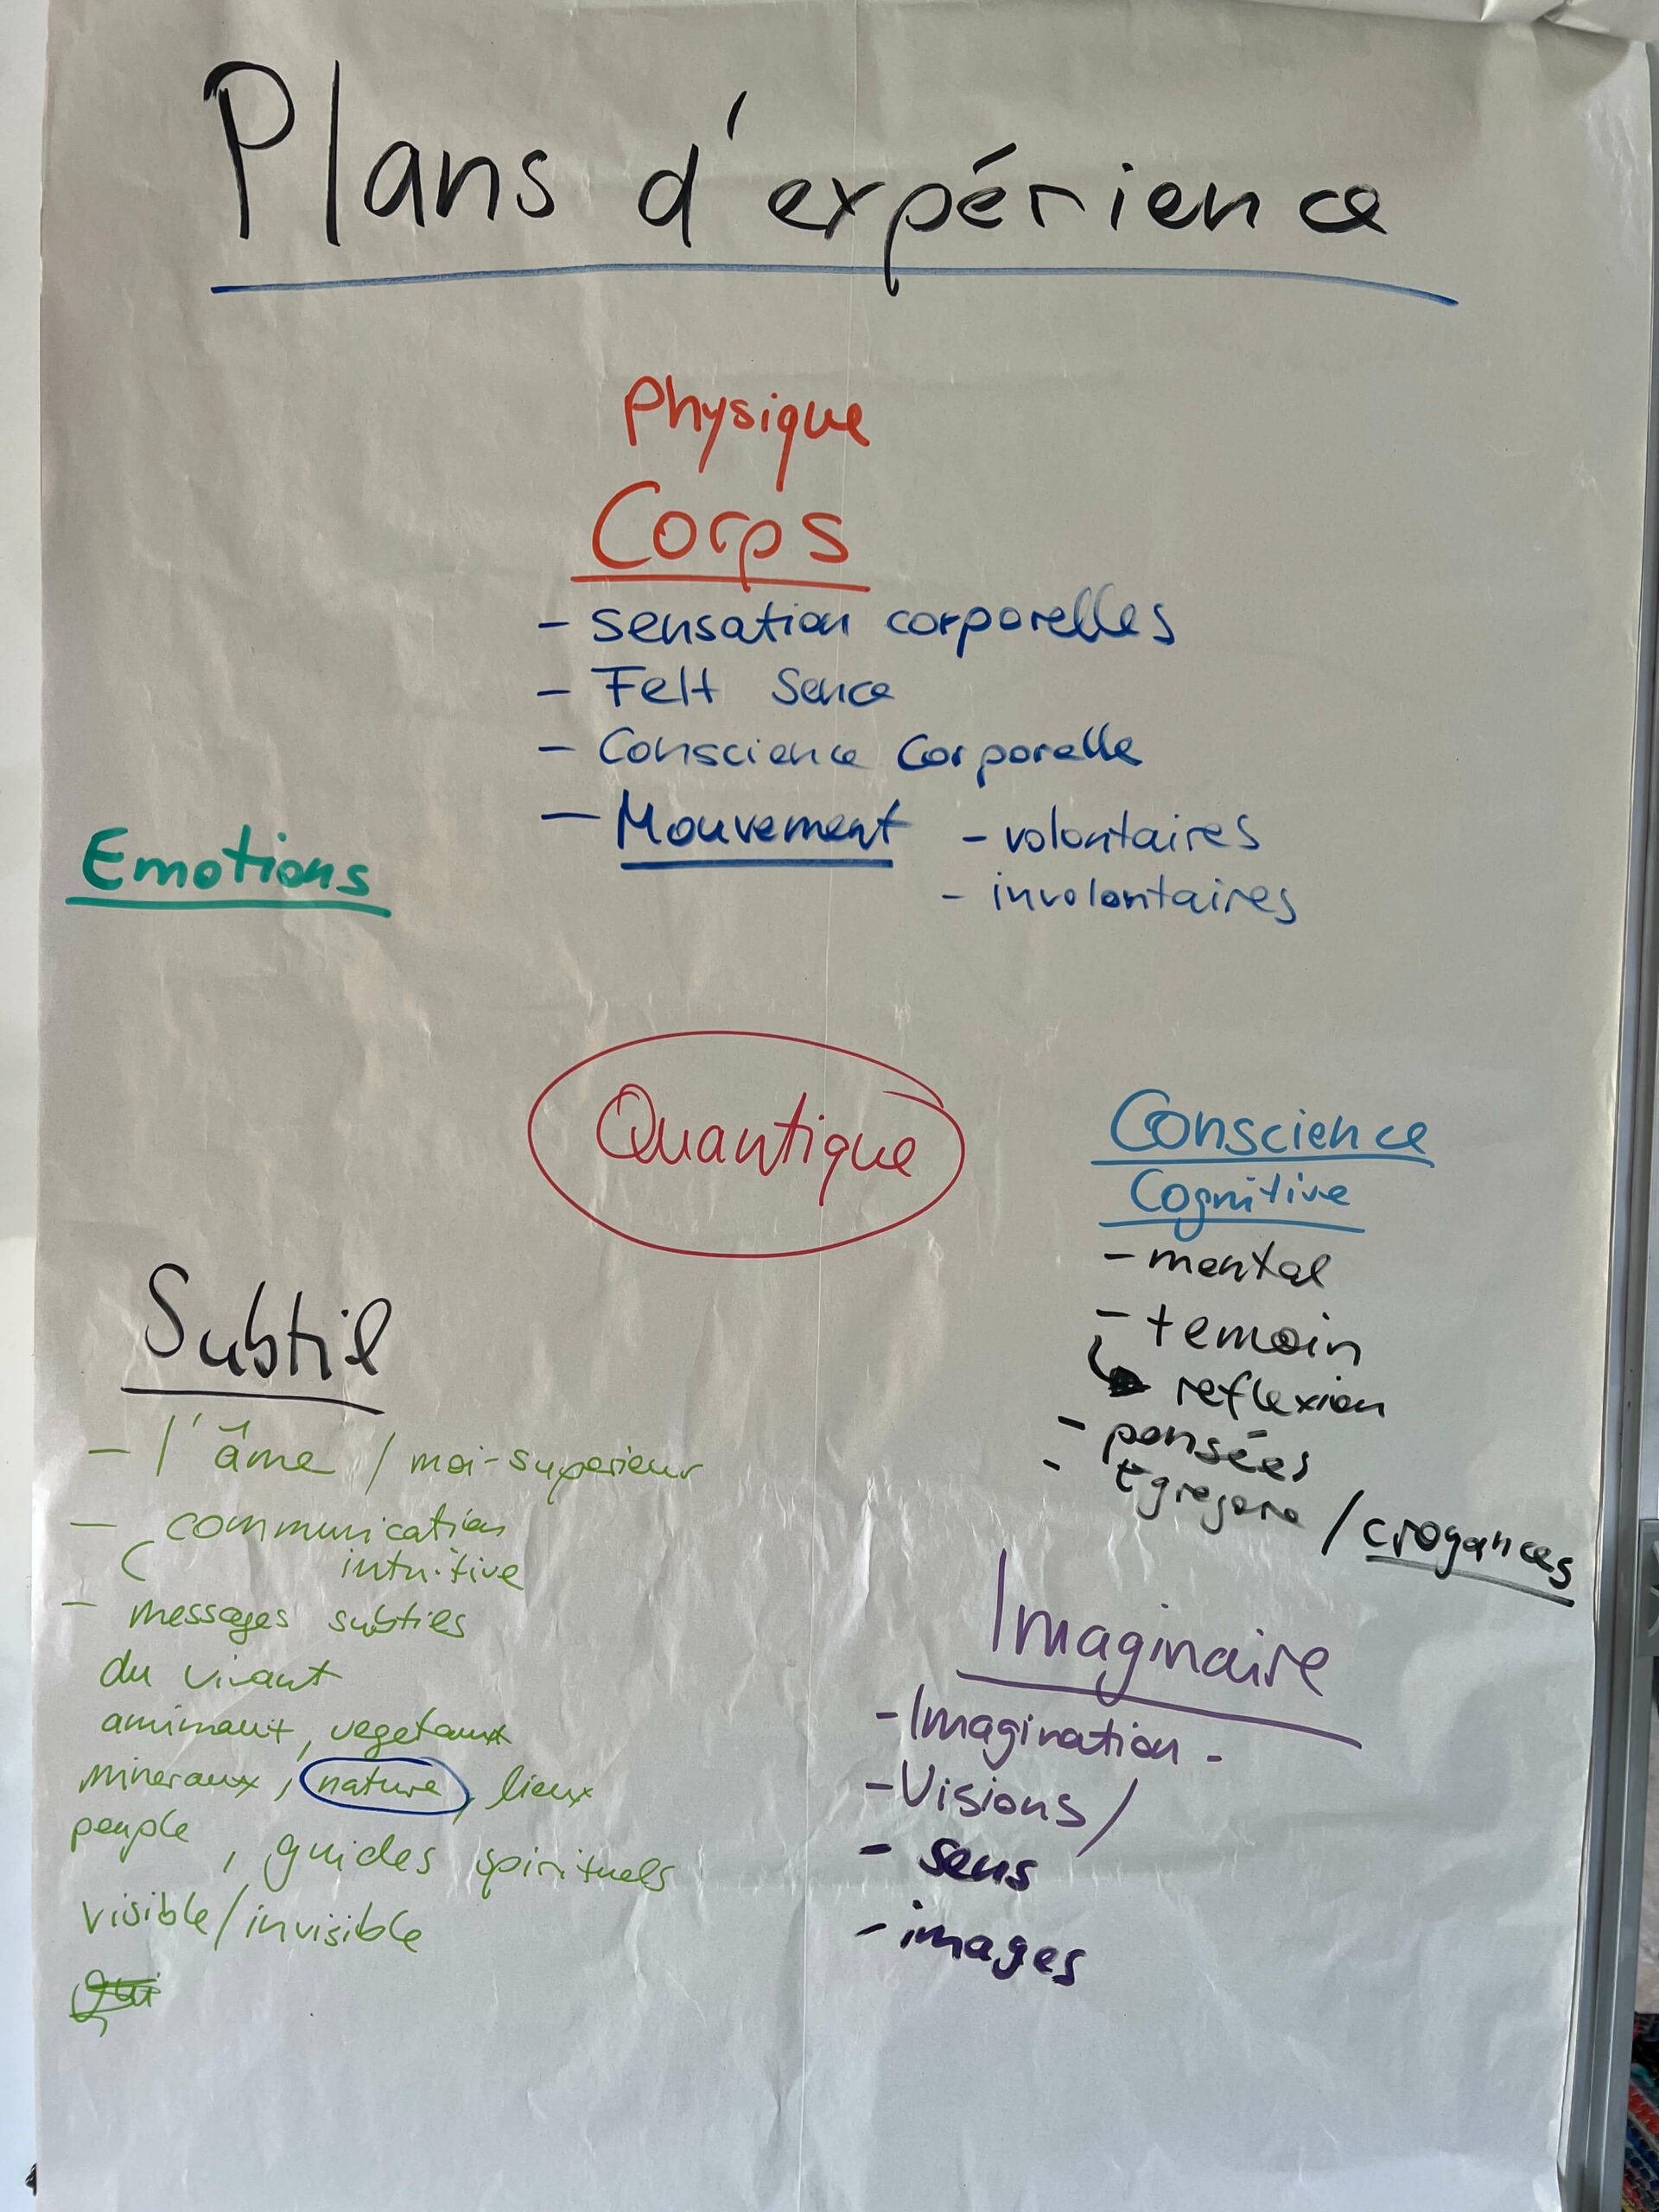 Plans d'expérience
Physique
Corps
- sensation corporelles
- Felt Sence
- Conscience Corporelle
- Mouvement - volontaires
- involontaires
Emotions
Quantique
Conscience
Cognitive
- mental
- temoin
reflexion
- pensées
- Egregore / croyances
Subtil
- l'âme / moi-superieur
- communication
intuitive
- messages subtils
du vivant
amimaux, vegetaux
mineraux, nature, lieux
peuple, guides spirituels
visible/invisible
Imaginaire
- Imagination -
- Visions /
- sens
- images